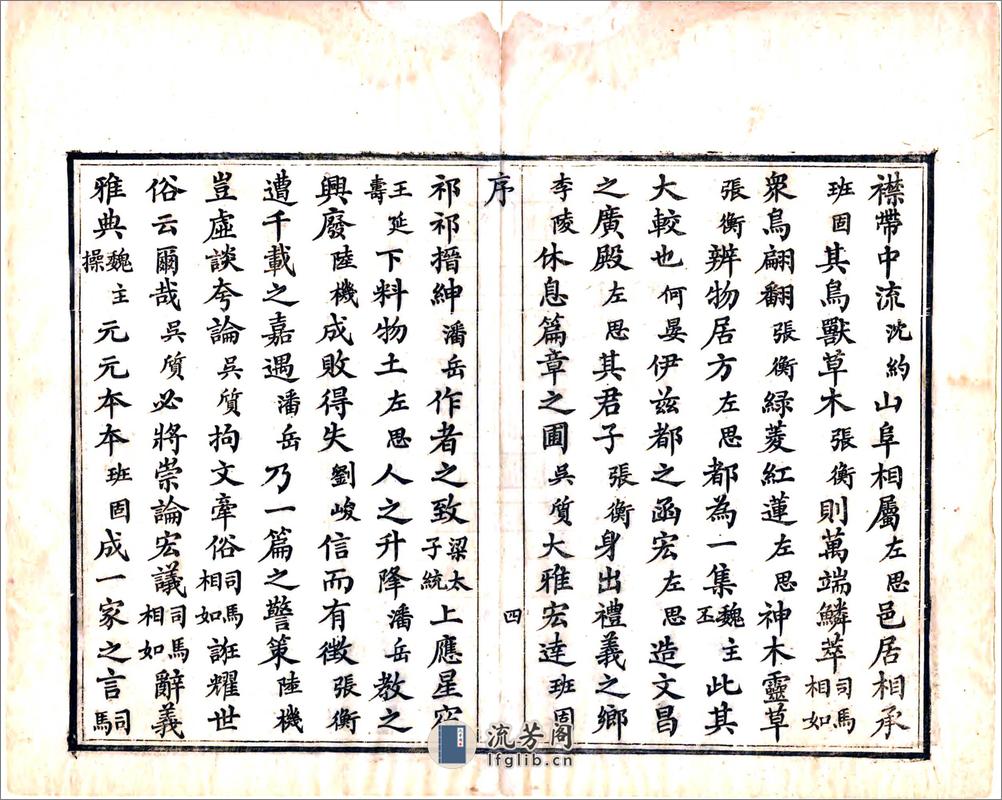 襟帶中流沈約山阜相屬左思邑居相承
班固其鳥獸草木張衡則萬端鱗萃司馬相如
衆鳥翩翻張衡緑菱紅蓮左思神木靈草
張衡辨物居方左思都為一集魏主丕此其
大較也何晏伊兹都之函宏左思造文昌
之廣殿左思其君子張衡身出禮義之鄉
李陵休息篇章之圃吳質大雅宏達班固
序 四
祁祁搢紳潘岳作者之致梁太子統上應星宿
王延壽下料物土左思人之升降潘岳教之
興廢陸機成敗得失劉峻信而有徵張衡
遭千載之嘉遇潘岳乃一篇之警策陸機
豈虛談夸論吳質拘文牽俗司馬相如誑耀世
俗云爾哉吳質必將崇論宏議司馬相如辭義
雅典魏主操元元夲夲班固成一家之言司馬
流芳阁
lfglib.cn